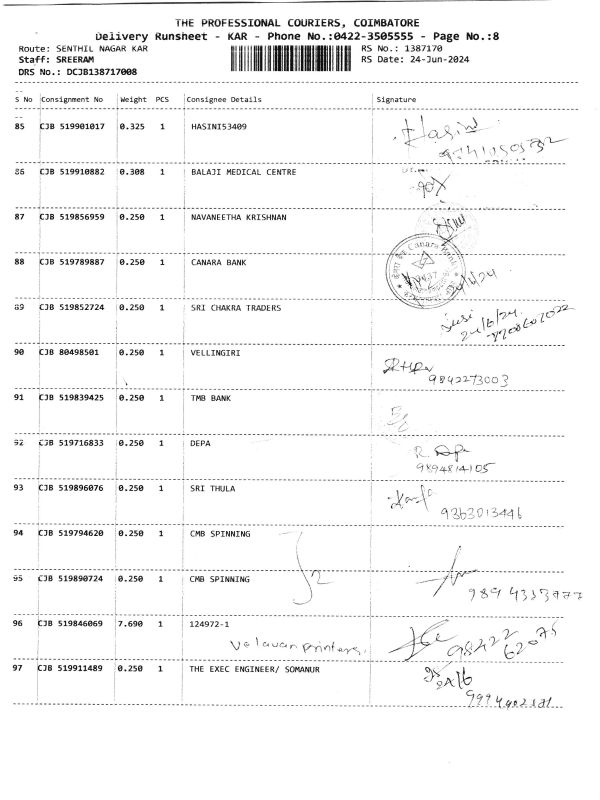 THE PROFESSIONAL COURIERS, COIMBATORE
Delivery Runsheet - KAR - Phone No.:0422-3505555 - Page No.:8
Route: SENTHIL NAGAR KAR RS No.: 1387170
Staff: SREERAM RS Date: 24-Jun-2024
DRS No.: DCJB138717008
S No Consignment No Weight PCS Consignee Details Signature
85 CJB 519901017 0.325 1 HASINI53409 Hasini
86 CJB 519910882 0.308 1 BALAJI MEDICAL CENTRE
87 CJB 519856959 0.250 1 NAVANEETHA KRISHNAN
88 CJB 519789887 0.250 1 CANARA BANK Canara Bank
89 CJB 519852724 0.250 1 SRI CHAKRA TRADERS
24/6/24
90 CJB 80498501 0.250 1 VELLINGIRI
9842273003
91 CJB 519839425 0.250 1 TMB BANK
92 CJB 519716833 0.250 1 DEPA
9894814105
93 CJB 519896076 0.250 1 SRI THULA
9363013446
94 CJB 519794620 0.250 1 CMB SPINNING
95 CJB 519890724 0.250 1 CMB SPINNING
96 CJB 519846069 7.690 1 124972-1
Velavan printers, 98422 62075
97 CJB 519911489 0.250 1 THE EXEC ENGINEER/ SOMANUR